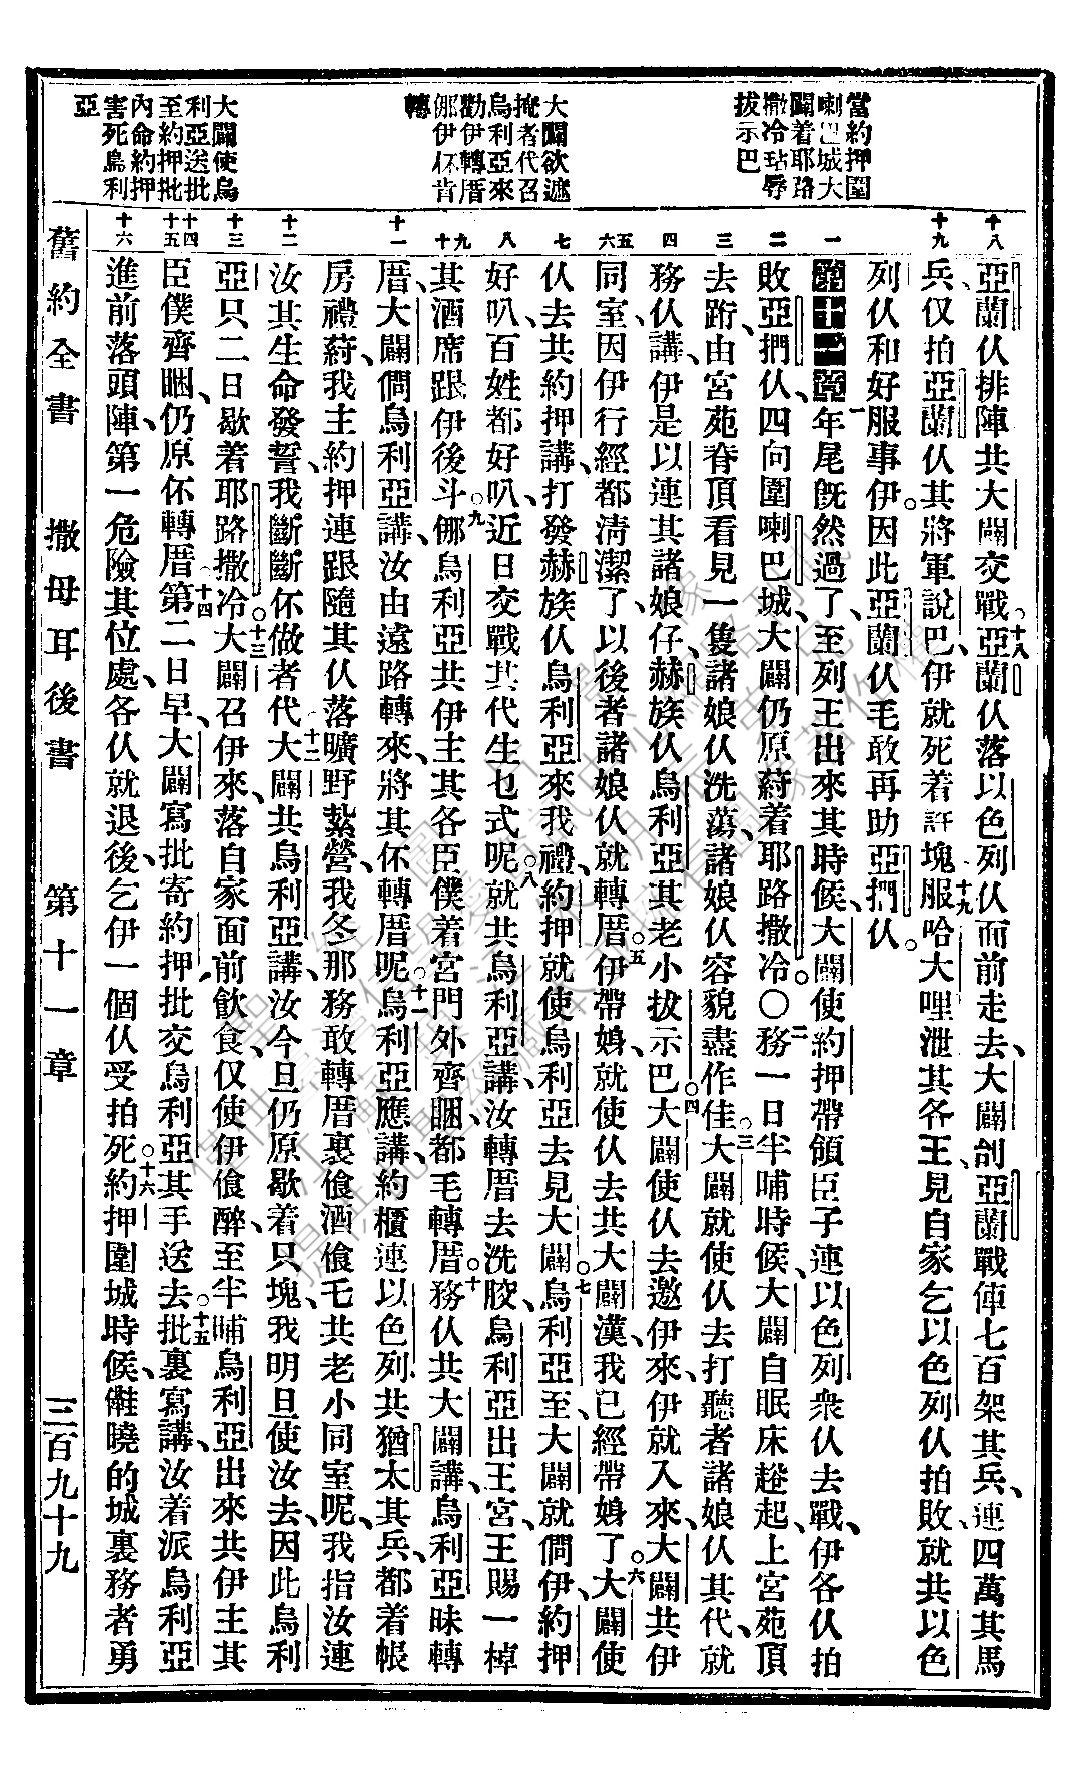 當約押圍
喇巴城大
闢着耶路
撒冷玷辱
拔示巴
大闢欲遮
掩者代召
烏利亞來
勸伊轉厝
㑚伊伓肯
轉
大闢使烏
利亞送批
至約押批
內命約押
害死烏利
亞
十八
十九
一
二
三
四
五 六
七
八
九 十
十一
十二
十三
十四 十五
十六
亞蘭仈排陣共大闢交戰○十八亞蘭仈落以色列仈面前走去、大闢刣亞蘭戰俥七百架其兵、連四萬其馬
兵、仅拍亞蘭仈其將軍說巴、伊就死着許塊○十九服哈大哩泄其各王、見自家乞以色列仈拍敗、就共以色
列仈和好服事伊。因此亞蘭仈毛敢再助亞捫仈。
第十一章 一年尾旣然過了、至列王出來其時候、大闢使約押帶領臣子連以色列衆仈去戰、伊各仈拍
敗亞捫仈、四向圍喇巴城、大闢仍原蒔着耶路撒冷。○二務一日半晡時候、大闢自眠床趂起、上宮苑頂
去跻、由宮苑脊頂看見一隻諸娘仈洗蕩、諸娘仈容貌盡作佳○三大闢就使仈去打聽者諸娘仈其代、就
務仈講、伊是以連其諸娘仔、赫族仈烏利亞其老小拔示巴○四大闢使仈去邀伊來、伊就入來、大闢共伊
同室、因伊行經都淸潔了、以後者諸娘仈就轉厝○五伊帶娠、就使仈去共大闢漢、我已經帶娠了○六大闢使
仈去共約押講、打發赫族仈烏利亞來我禮、約押就使烏利亞去見大闢○七烏利亞至、大闢就僩伊、約押
好叭、百姓都好叭、近日交戰其代生乜式呢○八就共烏利亞講、汝轉厝去洗骹、烏利亞出王宮、王賜一棹
其酒席跟伊後斗○九㑚烏利亞共伊主其各臣僕着宮門外齊睏、都毛轉厝○十務仈共大闢講、烏利亞昧轉
厝、大闢僩烏利亞講、汝由遠路轉來、將其伓轉厝呢○十一烏利亞應講、約櫃連以色列共猶太其兵、都着帳
房禮蒔、我主約押連跟隨其仈落曠野紥營、我冬那務敢轉厝裏飡酒飡乇共老小同室呢、我指汝連
汝其生命發誓、我斷斷伓做者代○十二大闢共烏利亞講、汝今旦仍原歇着只塊、我明旦使汝去、因此烏利
亞只二日歇着耶路撒冷○十三大闢召伊來、落自家面前飮食、仅使伊飡醉、至半晡烏利亞出來共伊主其
臣僕齊睏、仍原伓轉厝○十四第二日早、大闢寫批寄約押、批交烏利亞其手送去○十五批裏寫講、汝着派烏利亞
進前落頭陣、第一危險其位處、各仈就退後、乞伊一個仈受拍死○十六約押圍城時候、㒪曉的城裏務者勇
舊約全書 撒母耳後書 第十一章 三百九十九